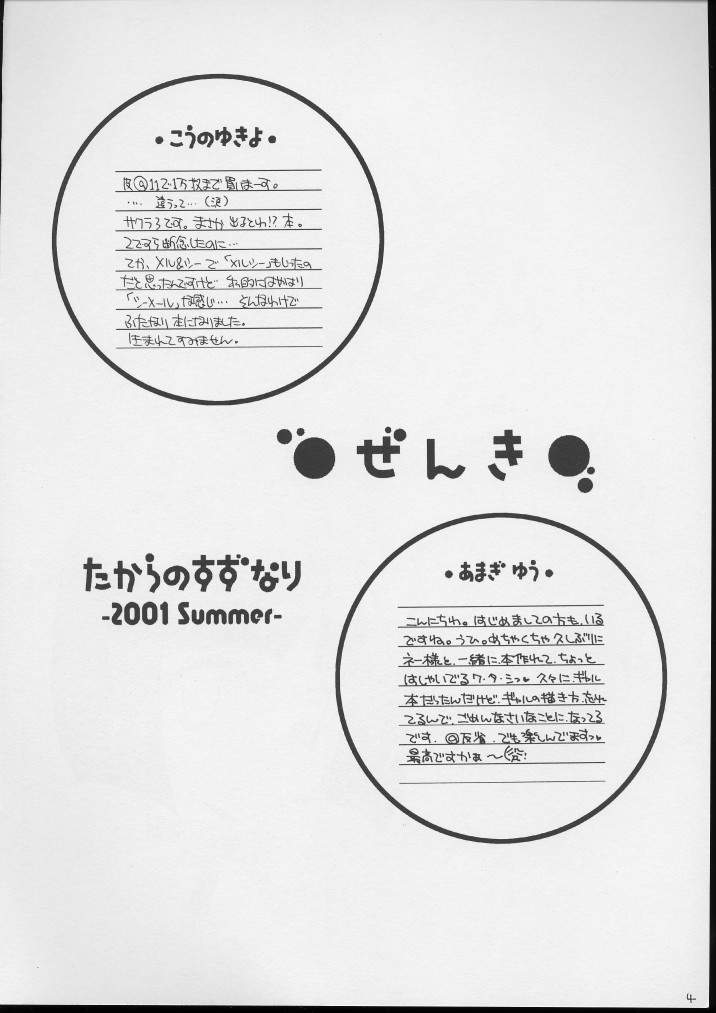 ・こうのゆきよ・
まで買はーす。
・・・・ 違うって・・・(涙)
サクラ3です。まさか出るとわ!?本。
2ですら断念したのに・・・
てか、メル&シーで「メルシー」もじったの
だと思ったんですけど 私的にはやはり
「シーメール」な感じ・・・ そんなわけで
ふたなり本になりました。
生まれてすみません。
ぜんき
たからのすずなり
-2001 Summer-
・あまぎ ゆう・
こんにちわ。はじめましての方も、いる
ですね。うひ。めちゃくちゃ久しぶりに
ネー様と、一緒に、本作れて、ちょっと
はしゃいでるワ・タ・シっ♥ 久々にギャル
本だったんだけど、ギャルの描き方、忘れ
てるんで、ごめんなさいなことに、なってる
です。@反省、でも楽しんでますっ♥
最高ですかぁ〜
4